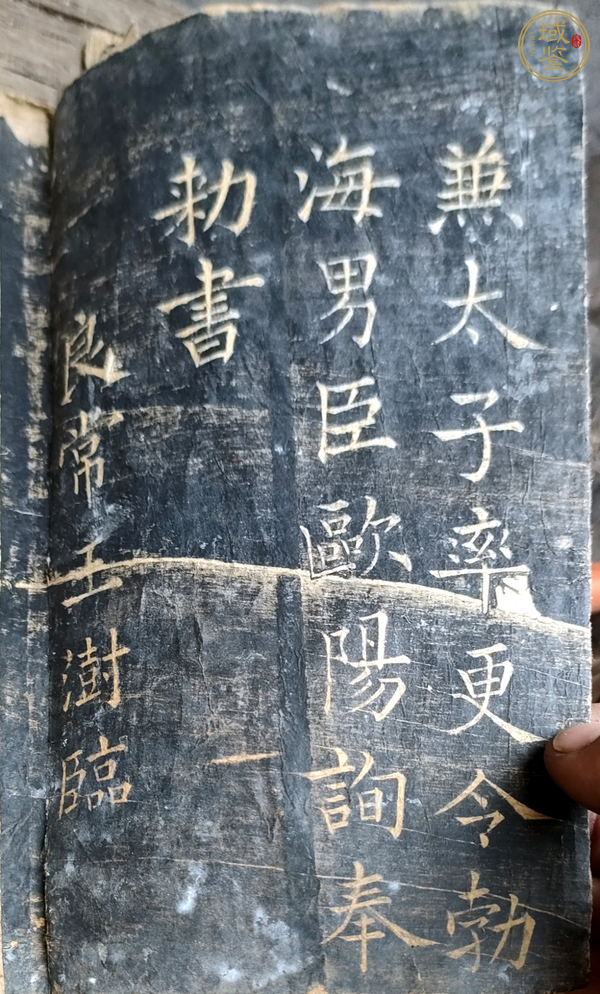 兼太子率更令勃
海男臣歐陽詢奉
勅書
良常王澍臨
域鉴